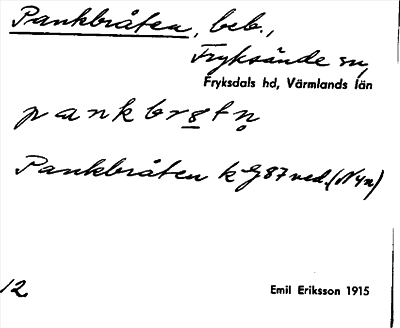 Pankbråten, beb.,
Fryksände sn,
Fryksdals hd, Värmlands län
pankbrɞtn̥
Pankbråten k G87 ned. (N4n)
12
Emil Eriksson 1915